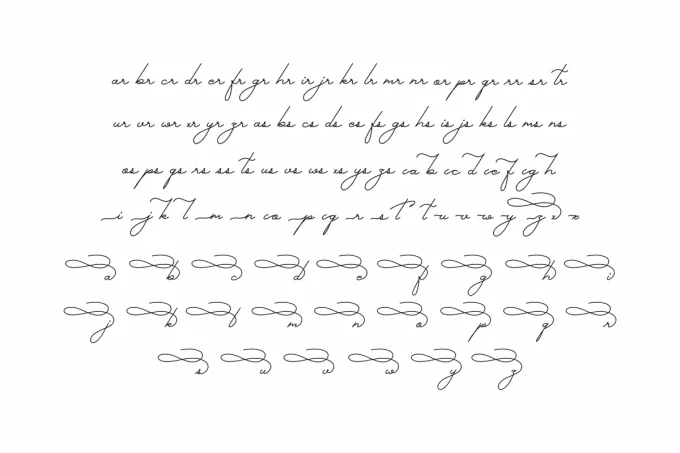 ar br cr dr er fr gr hr ir jr kr lr mr nr or pr qr rr sr tr
ur vr wr xr yr zr as bs cs ds es fs gs hs is js ks ls ms ns
os ps qs rs ss ts us vs ws xs ys zs a b c d e f g h
i j k l m n o p q r s t u v w y z x
a b c d e f g h i
j k l m n o p q r
s u v w y z